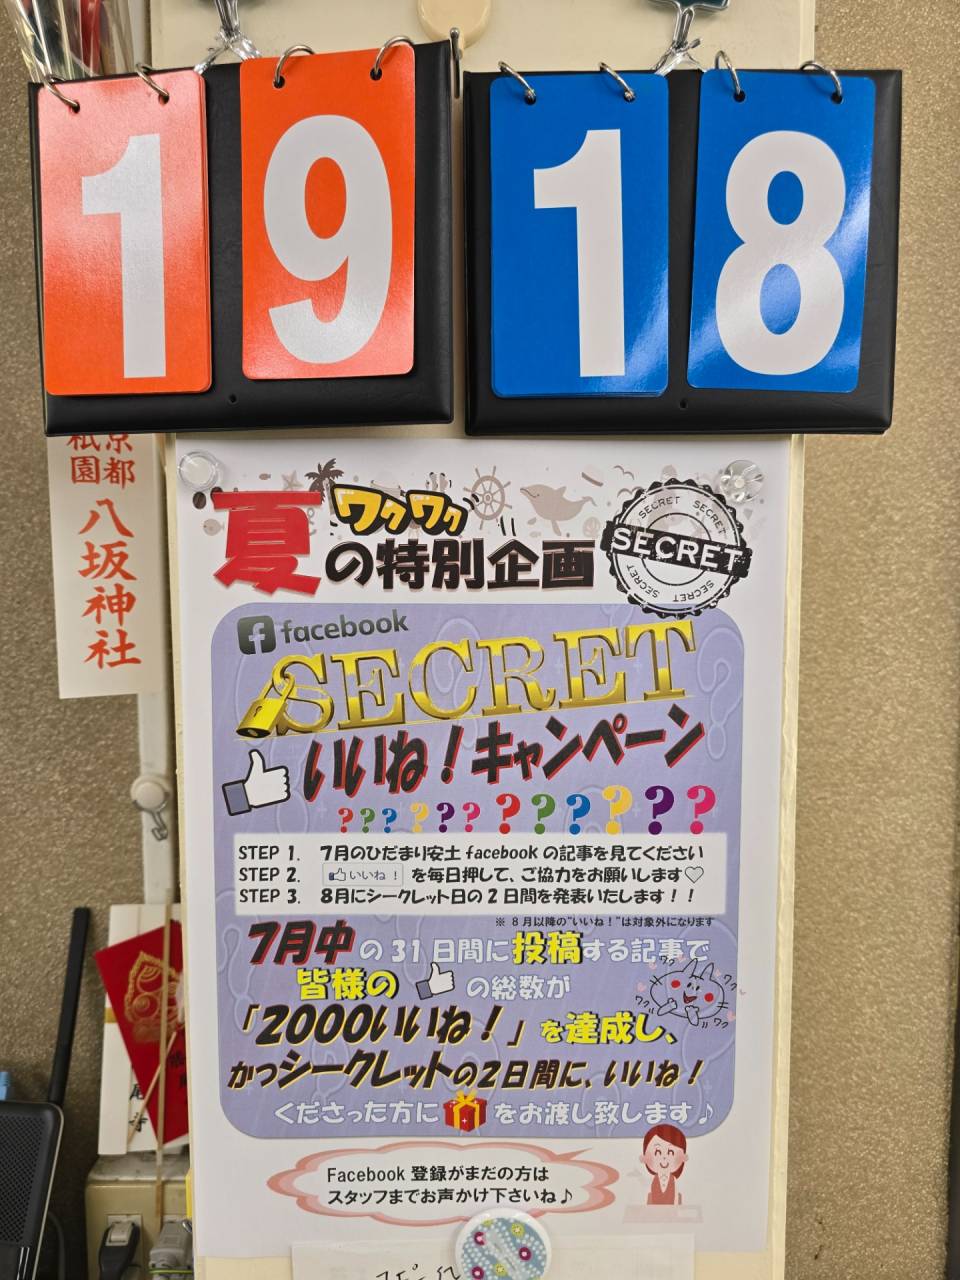 19
18
京都
祇園
八坂神社
ワクワク
夏の特別企画
SECRET
SECRET
SECRET
SECRET
SECRET
facebook
SECRET
いいね！キャンペーン
? ? ? ? ? ? ? ? ? ? ? ?
STEP 1. 7月のひだまり安土 facebook の記事を見てください
STEP 2. いいね！ を毎日押して、ご協力をお願いします♡
STEP 3. 8月にシークレット日の2日間を発表いたします！！
※ 8月以降の"いいね！"は対象外になります
7月中の31日間に投稿する記事で
皆様の の総数が
ワク ワク
ワク ワク
「2000いいね！」を達成し、
かつシークレットの2日間に、いいね！
くださった方に をお渡し致します♪
Facebook 登録がまだの方は
スタッフまでお声かけ下さいね♪